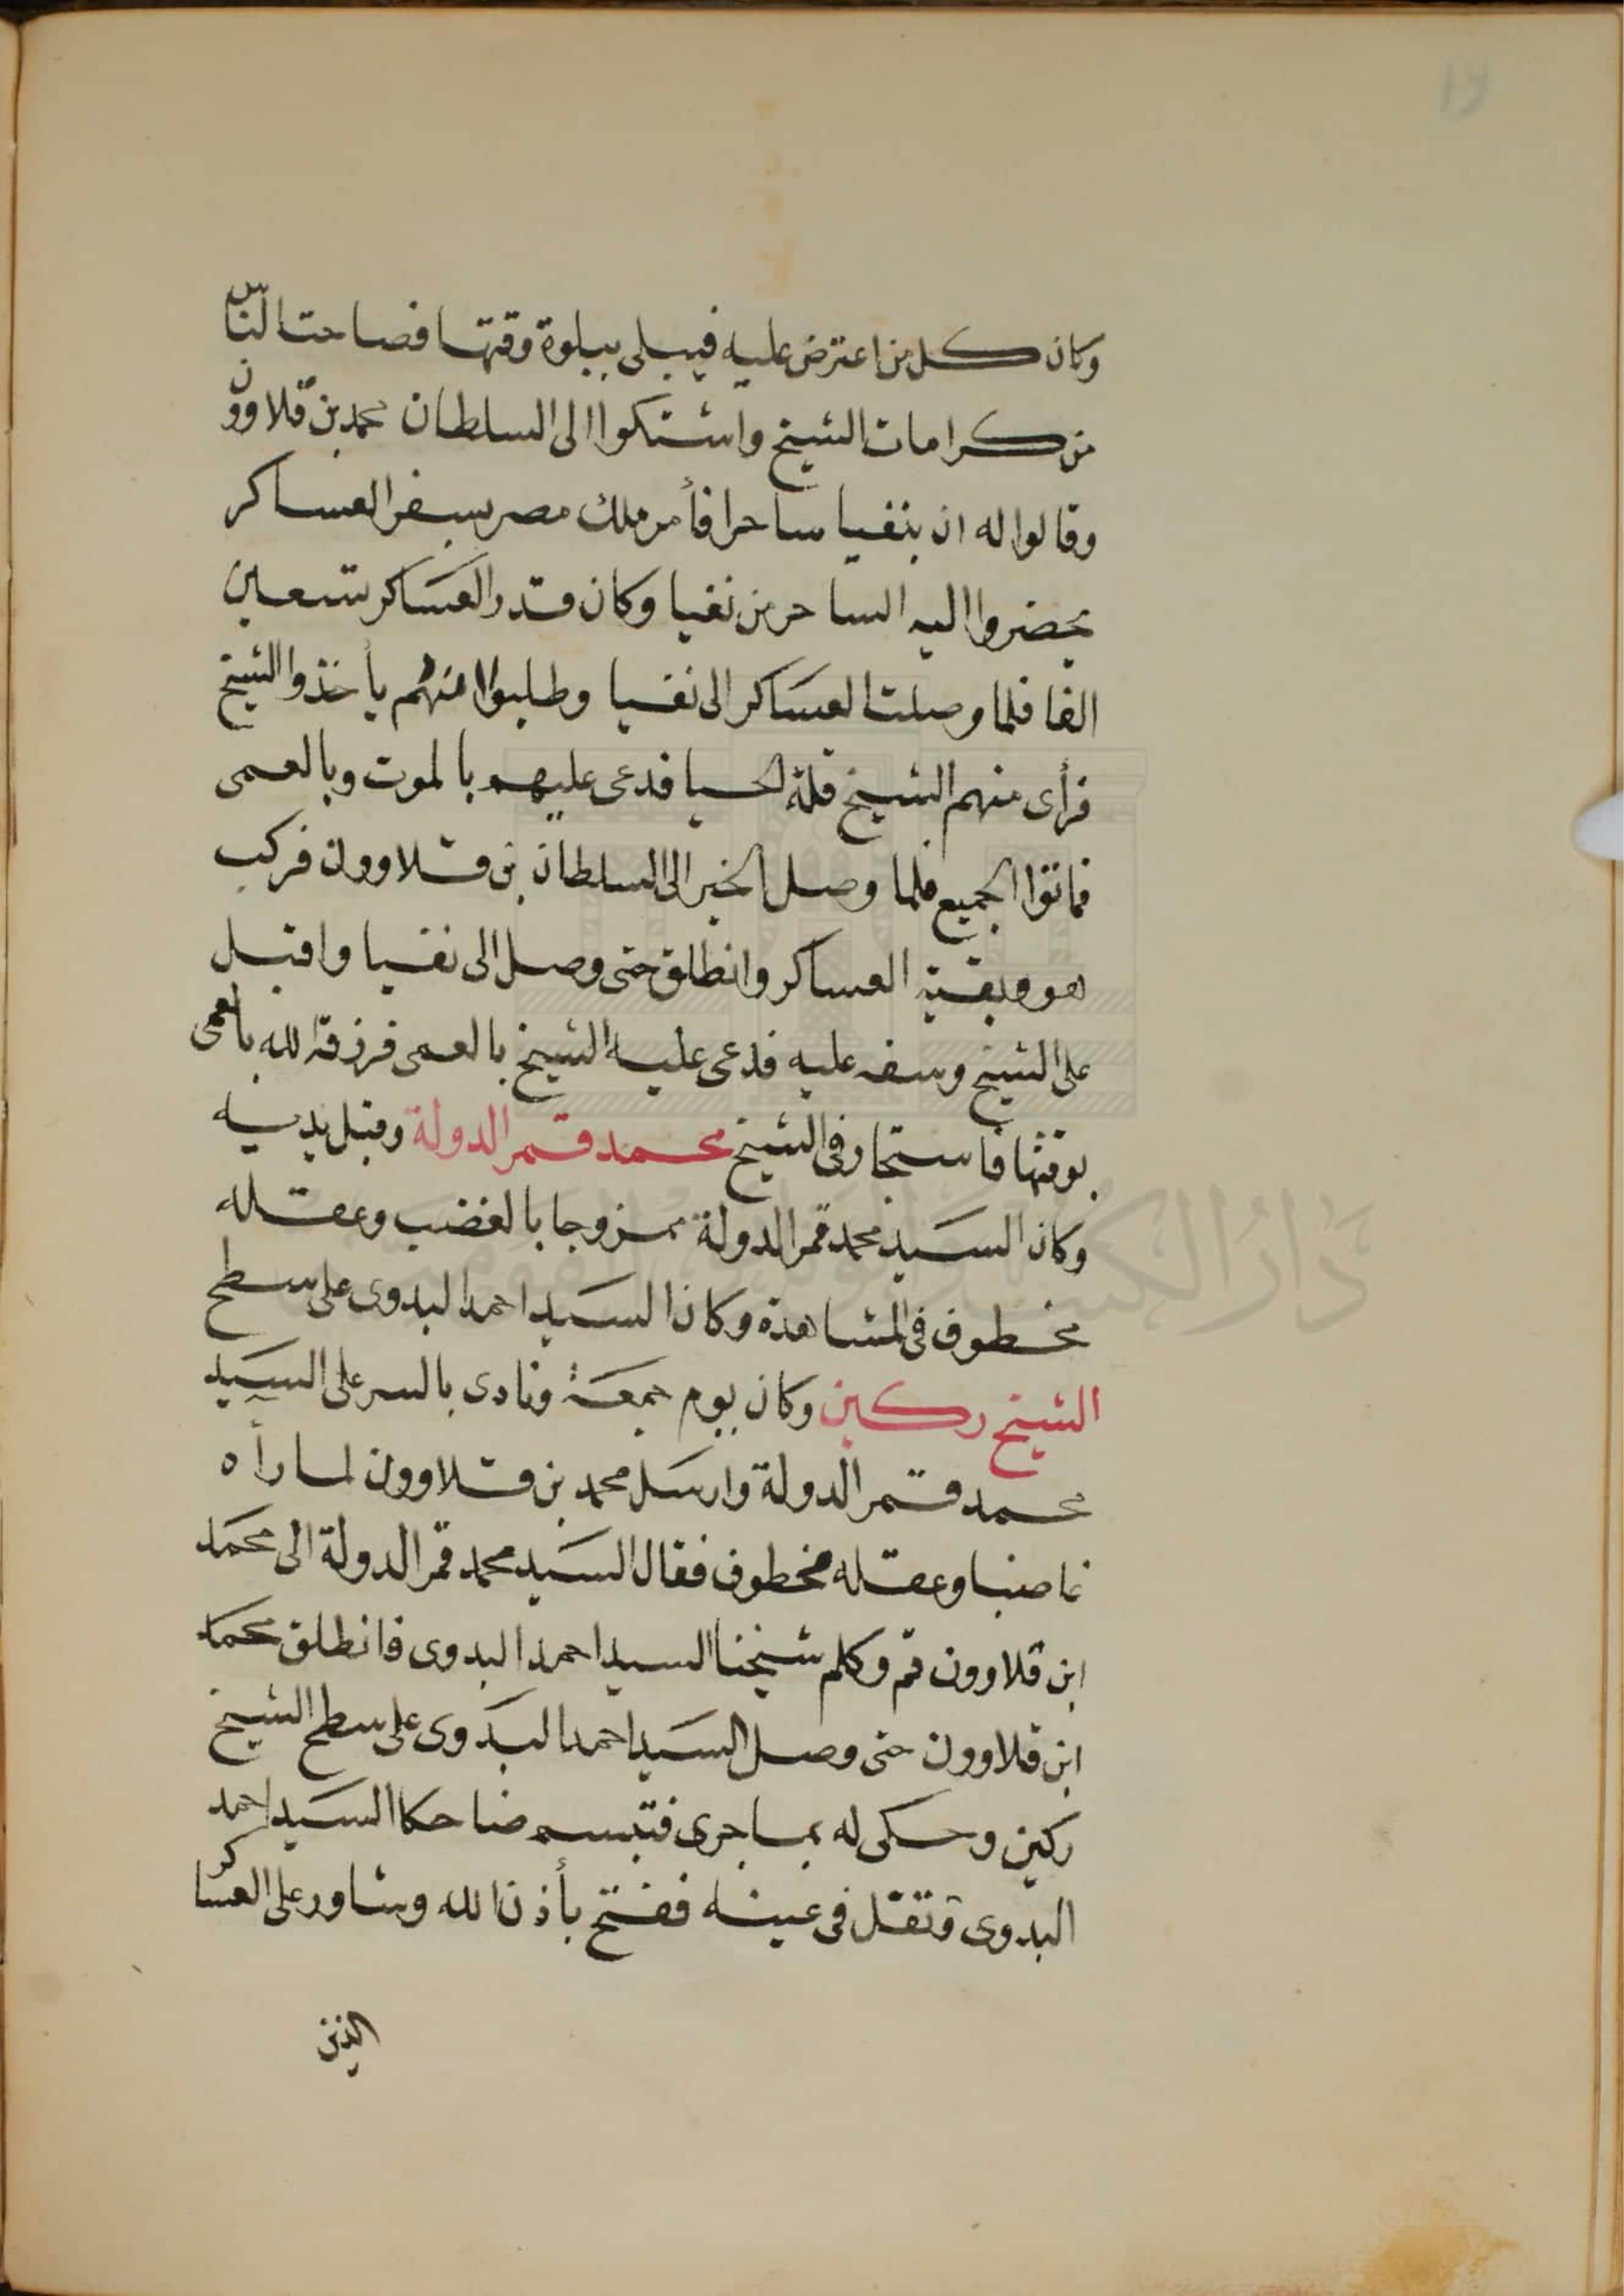 وكان كل من اعترض عليه فيبلى ببلوة وقتها فصاحت الناس
من كرامات الشيخ واشتكوا الى السلطان محمد بن قلاوون
وقالوا له ان بنفيا ساحرا فأمر ملك مصر بسفر العساكر
يحضروا اليه الساحر من نفيا وكان قدر العساكر تسعين
الفا فلما وصلت العساكر الى نفيا وطلبوا منهم يأخذوا الشيخ
فرأى منهم الشيخ قلة الحيا فدعى عليهم بالموت وبالعمى
فماتوا الجميع فلما وصل الخبر الى السلطان بن قلاوون فركب
هو وبقية العساكر وانطلق حتى وصل الى نفيا واقبل
على الشيخ وسفه عليه فدعى عليه الشيخ بالعمى فرزقه الله بالعمى
بوقتها فاستجار في الشيخ محمد قمر الدولة وقبل يديه
وكان السيد محمد قمر الدولة ممزوجا بالغضب وعقله
مخطوف في المشاهدة وكان السيد احمد البدوى على سطح
الشيخ ركين وكان يوم جمعة ونادى بالسر على السيد
محمد قمر الدولة وارسل محمد بن قلاوون لما رأه
غاضبا وعقله مخطوف فقال السيد محمد قمر الدولة الى محمد
ابن قلاوون قم وكلم شيخنا السيد احمد البدوى فانطلق محمد
ابن قلاوون حتى وصل السيد احمد البدوى على سطح الشيخ
ركين وحكى له بما جرى فتبسم ضاحكا السيد احمد
البدوى وتفل في عينه ففتح بأذن الله وشاور على العساكر
الذين
دار الكتب والوثائق القومية